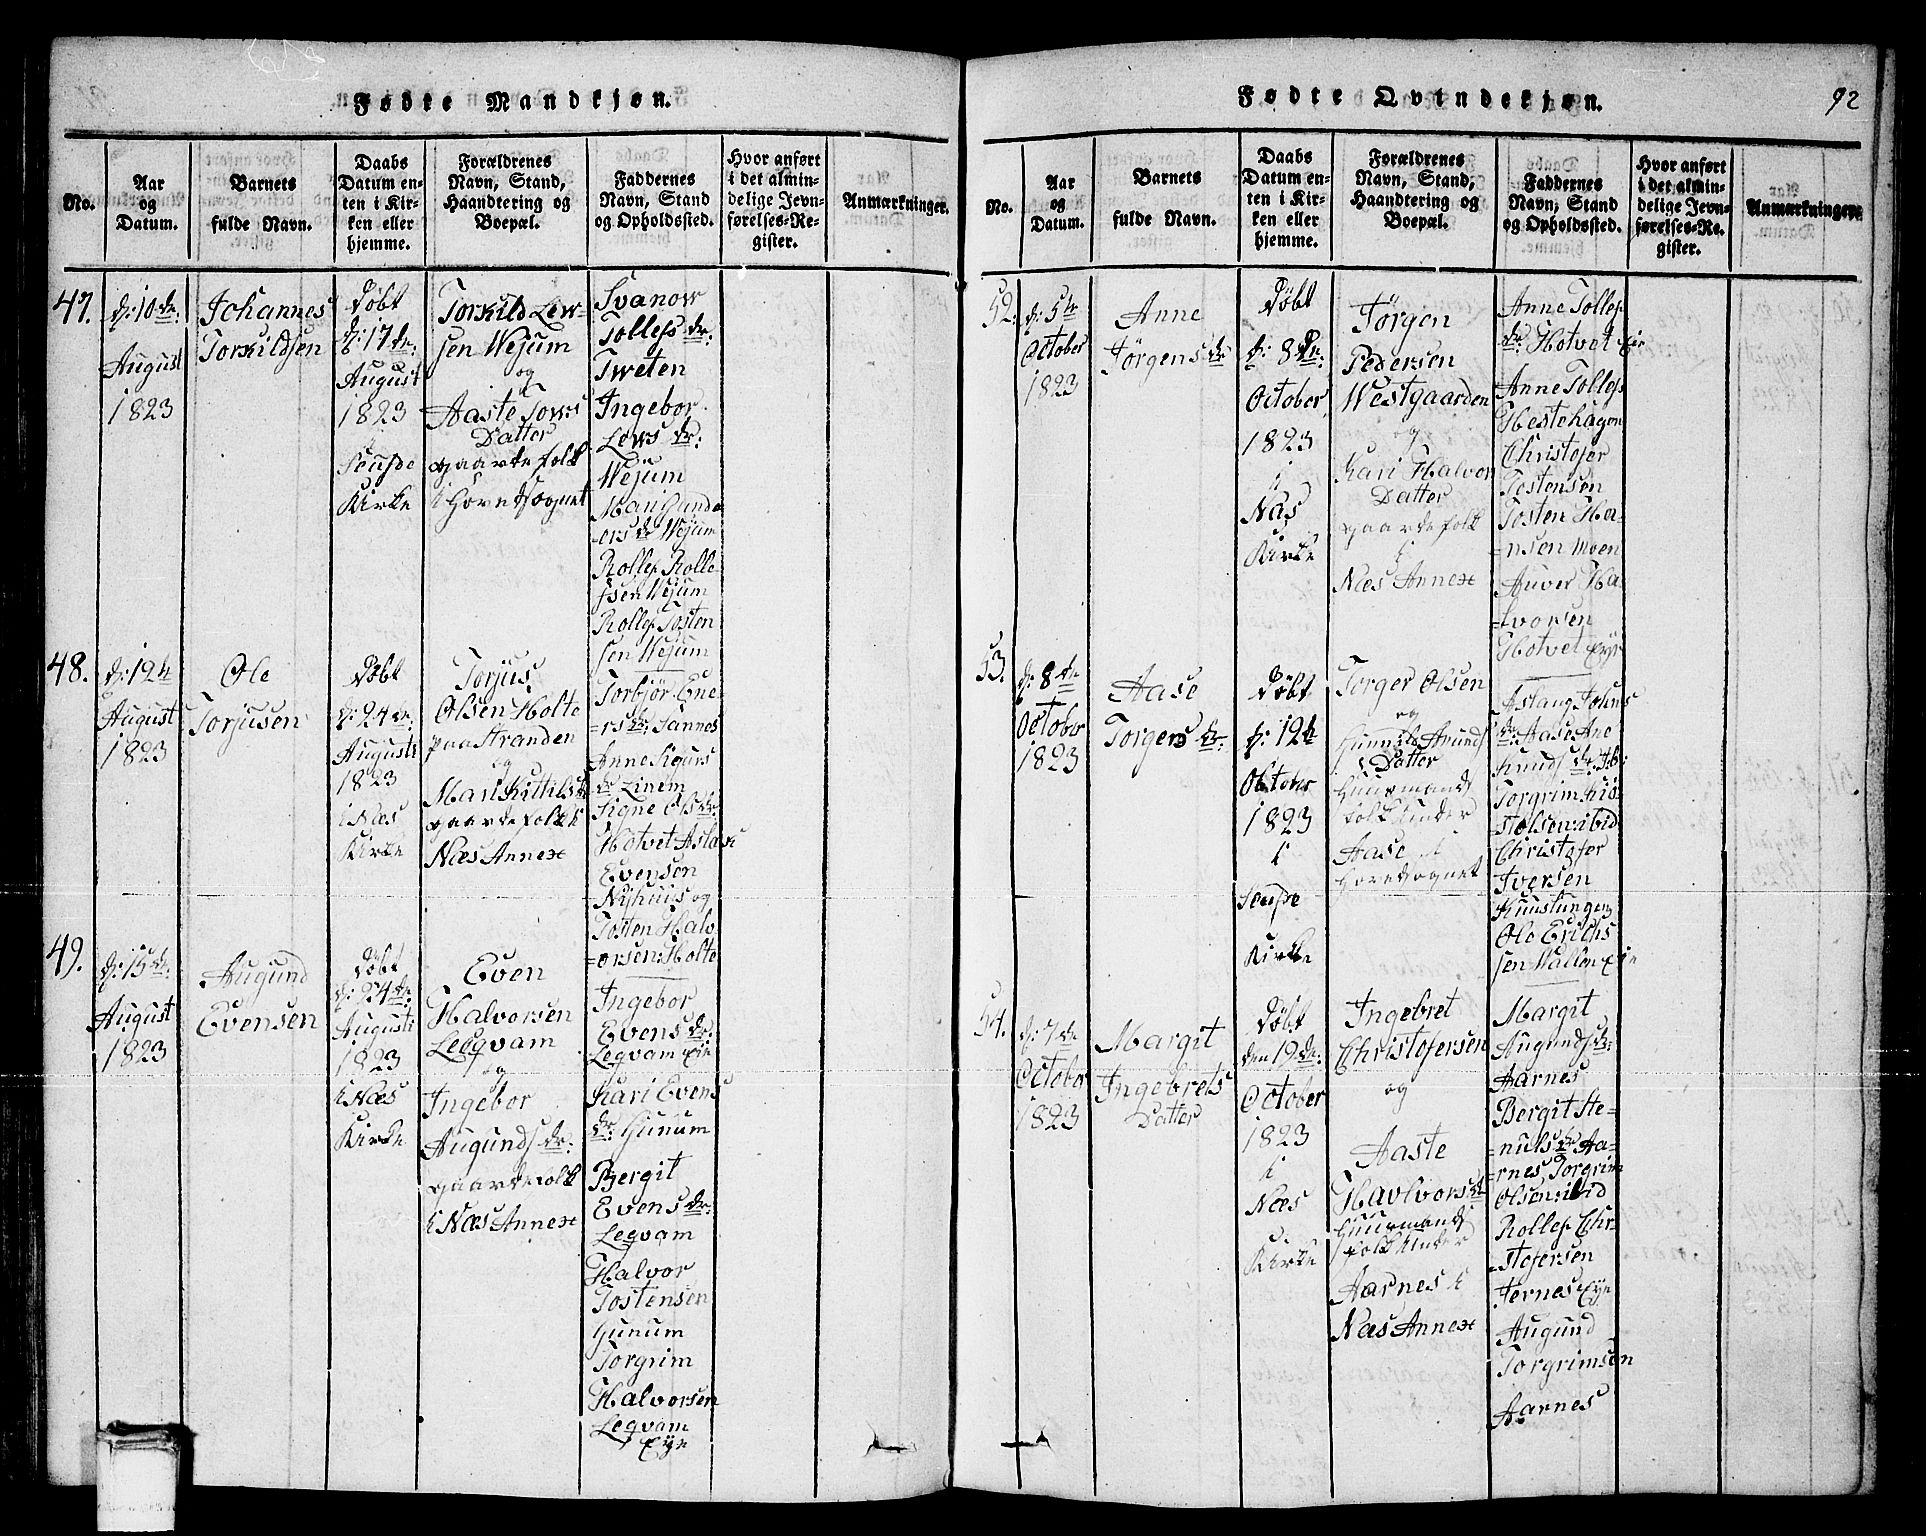 Fødte Mandkjøn.
No.
Aar
og
Datum.
Barnets
fulde Navn.
Daabs
Datum en-
ten i Kir-
ken eller
hjemme.
Forældrenes
Navn, Stand,
Haandtering og
Boepæl.
Faddernes
Navn, Stand
og Opholdssted.
Hvor anført
i det almin-
delige Jevn-
førelses-Re-
gister.
Anmærkninger.
47.
d: 10de:
August
1823
Johannes
Torkildsen
Døbt
d: 17de:
August
1823
i
Kirke
Torkild Lew-
sen Wejum
og
Aaste Tows
Datter
gaardefolk
i Hovetsognet
Svanow
Tollefs dr:
Tweten
Ingebor
Lews dr:
Wejum
Mari Gunde
ers dr Wejum
Rollef Rolle-
fsen Wejum
Rollef Tosten
sen Wejum
48.
d: 12te
August
1823
Ole
Torjusen
Døbt
d: 24de:
August
1823
i Næs
Kirke
Torjus
Olsen Holte
paa Stranden
og
Mari Kittils dr
gaardefolk i
Næs Annex
Torbjør Ene-
rs dr: Sannes
Anne Sigurs
dr Linem
Signe Ols dr:
Hotvet Aslak
Evensen
Nyhuus og
Tosten Halv
=orsen: Holte
49.
d: 15de:
August
1823
Augund
Evensen
Døbt
d: 24de
August
1823
i Næs
Kirke
Even
Halvorsen
Leqvam
og
Ingebor
Augunds dr:
gaardefolk
i Næs Annex
Ingebor
Evens dr:
Leqvam Eie
Kari Evens
dr: Gunum
Bergit
Evens dr:
Leqvam
Halvor
Tostensen
Gunum
Torgrim
Halvorsen
Leqvam
Eye
Fødte Qvindekjøn.
92
No.
Aar
og
Datum.
Barnets
fulde Navn.
Daabs
Datum en-
ten i Kir-
ken eller
hjemme.
Forældrenes
Navn, Stand,
Haandtering og
Boepæl.
Faddernes
Navn, Stand
og Opholdssted.
Hvor anført
i det almin-
delige Jevn-
førelses-Re-
gister.
Anmærkninger.
52.
d: 5te
October
1823
Anne
Jørgens dr
Døbt
d: 8de:
October
1823
i
Næs
Kirke
Jørgen
Pedersen
Westgaarden
og
Kari Halvor
Datter
gaardefolk
i
Næs Annex
Anne Tollef
dr: Hotvet Eie
Anne Tollefs
Hestehagen
Christofer
Tostensen
Tosten Ha-
=nsen Moen
Auver Ha
=lvorsen
Hotvet Eye
53.
d: 8de
October
1823
Aase
Torgers dr:
Døbt
d: 12te
Oktober
1823
i
Kirke
Torger Olsen
og
Gunnild Amunds
Datter
Huusmands
folk under
Aase i
Hovetsognet
Aslaug Johns
dr: Aase Ane
Knuds dr:
Torgrim
Olsen: ibid
Christofer
Iversen
Ole Erichs
sen Wallen Eie
54.
d: 7de
October
1823
Margit
Ingebrets
Datter
Døbt
den 19de:
October
1823
i
Næs
Kirke
Ingebret
Christofersen
og
Aaste
Havlvors dr
Huusmands
folk under
Aarnes i
Næs Annex
Margit
Augunds dr:
Aarnes
Bergit Ste-
=nuls dr Aa-
=rnes Torgrim
Olsen: ibid
Rollef Chr-
=istofersen
Jernes Eye
Augund
Torgrimsen
Aarnes